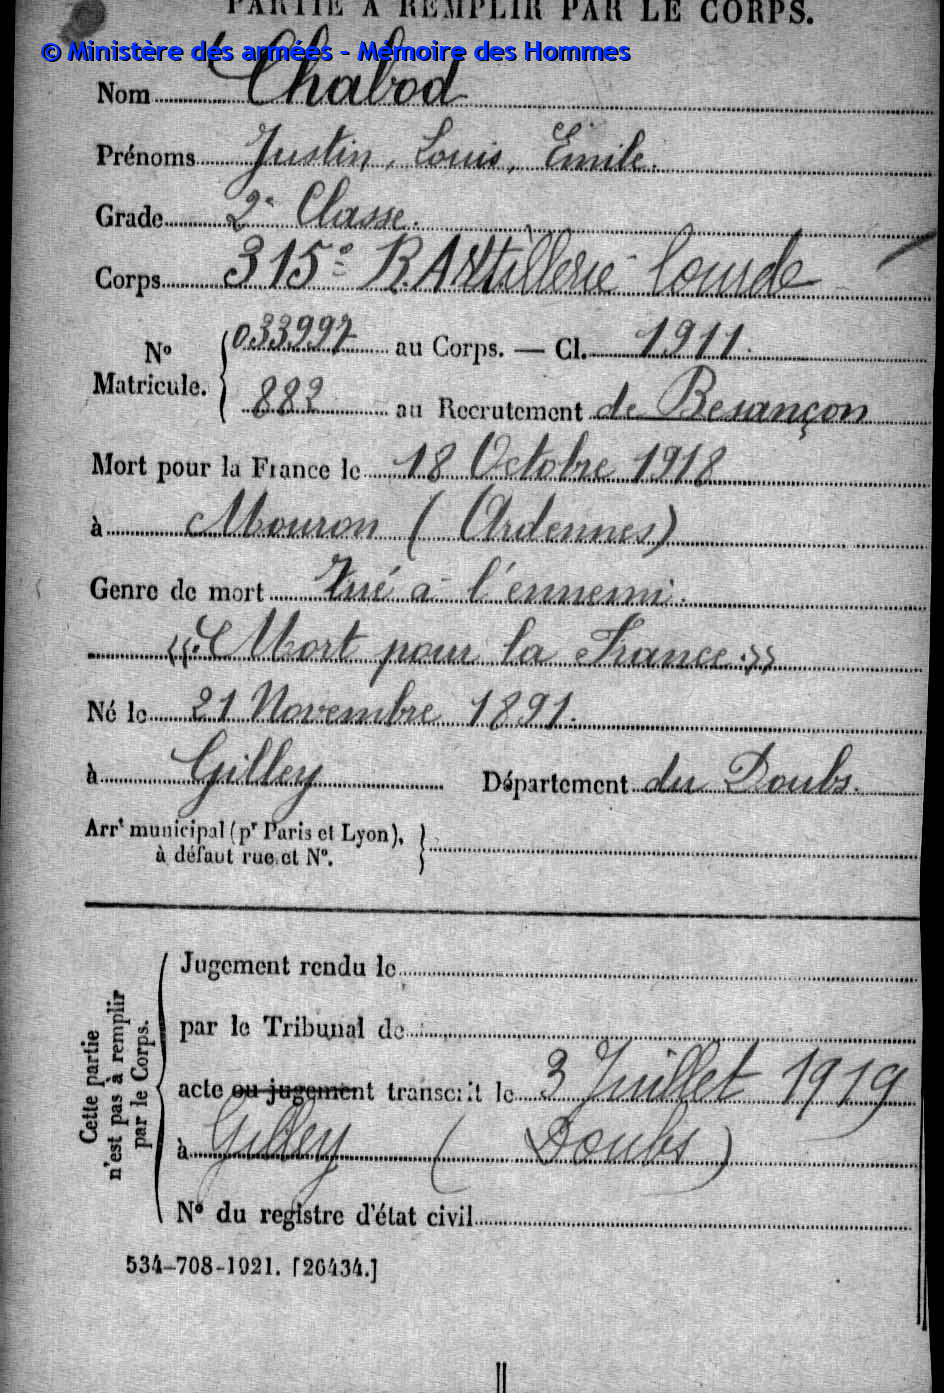 PARTIE À REMPLIR PAR LE CORPS.
© Ministère des armées - Mémoire des Hommes
Nom Chabod
Prénoms Justin, Louis, Emile.
Grade 2e Classe.
Corps 315e R. Artillerie lourde
No Matricule. { 033997 au Corps. — Cl. 1911.
882 au Recrutement de Besançon
Mort pour la France le 18 Octobre 1918
à Mouron (Ardennes)
Genre de mort Tué à l'ennemi.
«Mort pour la France.»
Né le 21 Novembre 1891.
à Gilley Département du Doubs.
Arrt municipal (pr Paris et Lyon), }
à défaut rue et No.
Cette partie n'est pas à remplir par le Corps.
Jugement rendu le
par le Tribunal de
acte ou jugement transcrit le 3 Juillet 1919
à Gilley (Doubs)
No du registre d'état civil
534-708-1921. [26434.]